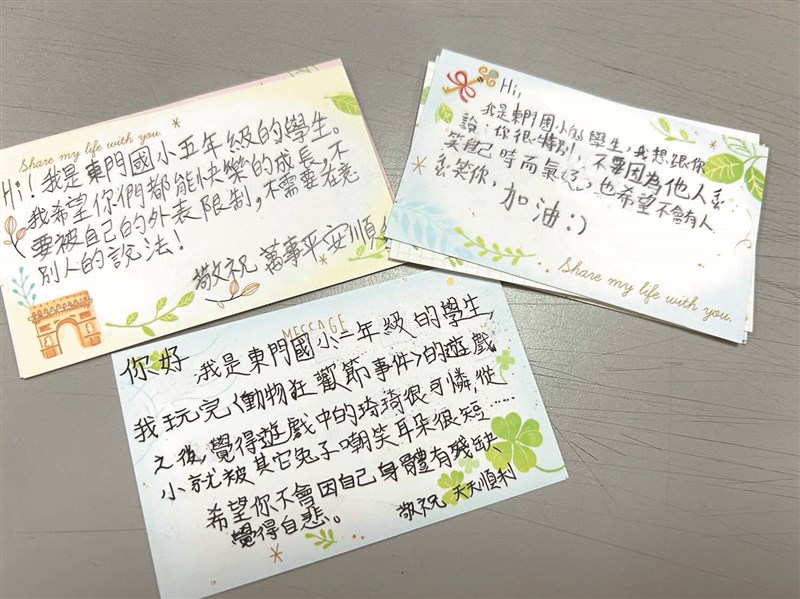 Share my life with you.
Hi！我是東門國小五年級的學生。
我希望你們都能快樂的成長，不
要被自己的外表限制，不需要在意
別人的說法！
敬祝 萬事平安順
Hi,
我是東門國小的學生，我想跟你
說：你很特別，不要因為他人
笑自己 時而氣，也希望不會有人
笑你，加油:)
Share my life with you.
MESSAGE
你好 我是東門國小二年級的學生，
我玩完〈動物狂歡節事件〉的遊戲
之後，覺得遊戲中的琦琦很可憐，從
小就被其它兔子嘲笑耳朵很短……
希望你不會因自己身體有殘缺、
覺得自悲。
敬祝 天天順利